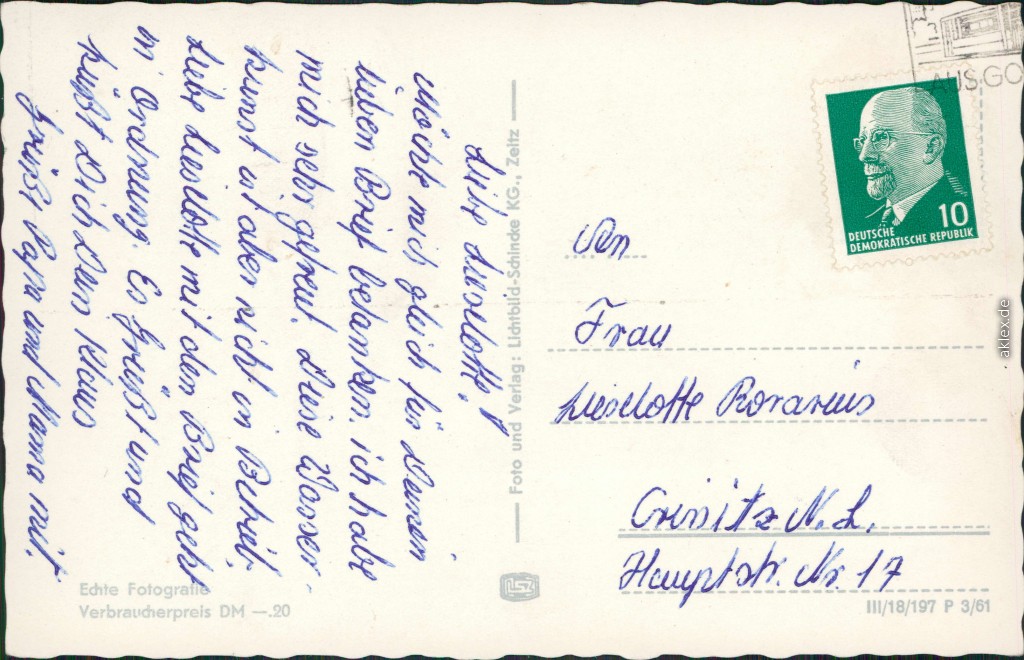 Liebe Lieselotte!
Möchte mich gleich für Deinen
lieben Brief bedanken. ich habe
mich sehr gefreut. Diese Wasser-
kunst ist aber nicht in Betrieb.
Liebe Lieselotte mit den Brief geht
in Ordnung. Es Grüßt und
küßt Dich Dein Klaus
Grüße Papa und Mama mit.
Foto und Verlag: Lichtbild-Schincke KG., Zeitz
Echte Fotografie
Verbraucherpreis DM —.20
AUSGO
10
DEUTSCHE
DEMOKRATISCHE REPUBLIK
An
Frau
Lieselotte Rorarius
Crinitz N.L.
Hauptstr. Nr. 17
III/18/197 P 3/61
aklex.de